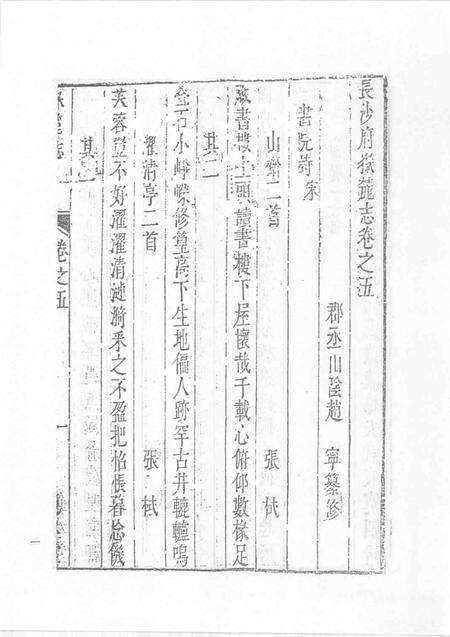 長沙府嶽麓志卷之五
郡丞山陰趙 寧纂修
書院詩 宋
山齋二首 張栻
藏書樓上頭讀書樓下屋懷哉千載心俯仰數椽足
其二
疊石小崢嶸修篁高下生地偏人跡罕古井轆轤鳴
濯清亭二首 張栻
芙蓉豈不好濯濯清漣漪采之不盈把惆悵暮忘饑
其二
嶽麓志
卷之五
一